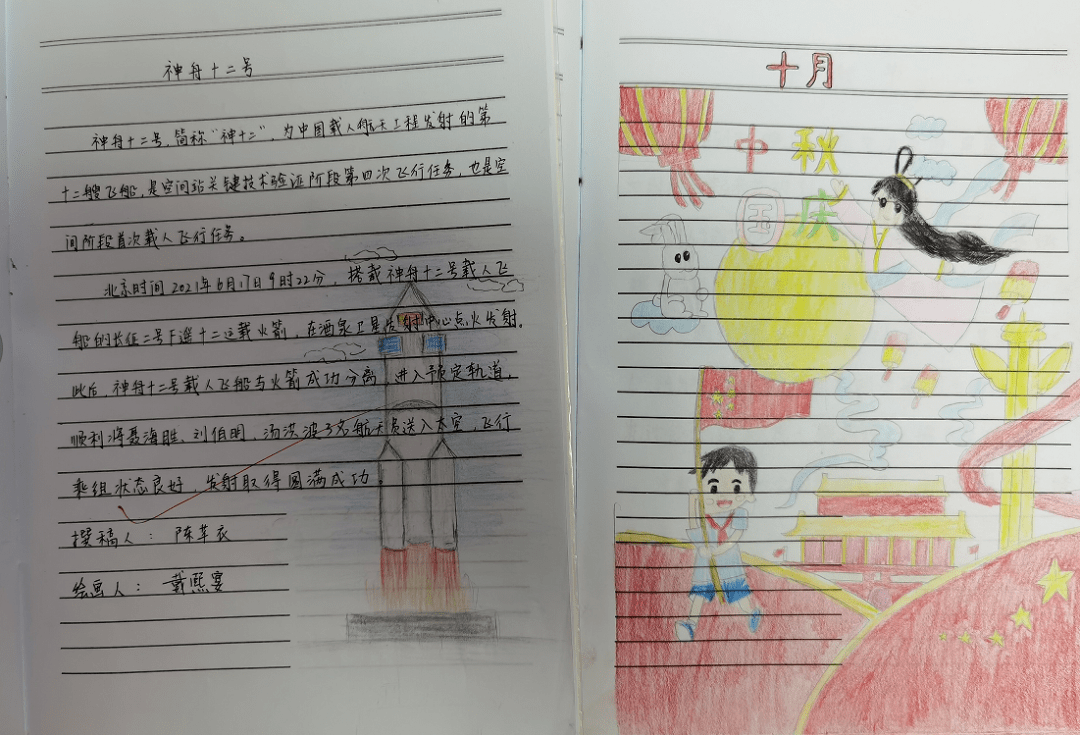 神舟十二号
神舟十二号，简称“神十二”，为中国载人航天工程发射的第
十二艘飞船，是空间站关键技术验证阶段第四次飞行任务，也是空
间阶段首次载人飞行任务。
北京时间2021年6月17日9时22分，搭载神舟十二号载人飞
船的长征二号F遥十二运载火箭，在酒泉卫星发射中心点火发射。
此后，神舟十二号载人飞船与火箭成功分离，进入预定轨道，
顺利将聂海胜、刘伯明、汤洪波3名航天员送入太空，飞行
乘组状态良好，发射取得圆满成功。
撰稿人：陈苹衣
绘画人：戴熙宴
十月
中秋
国庆